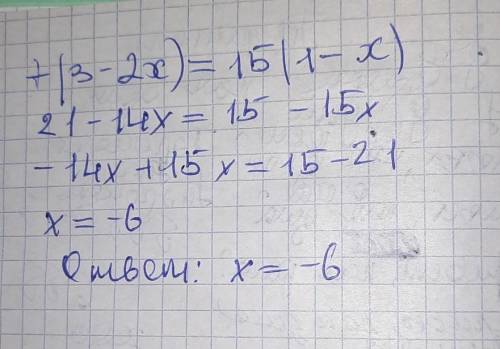 7(3-2x)=15(1-x)
21-14x=15-15x
-14x+15x=15-21
x=-6
Ответ: x=-6